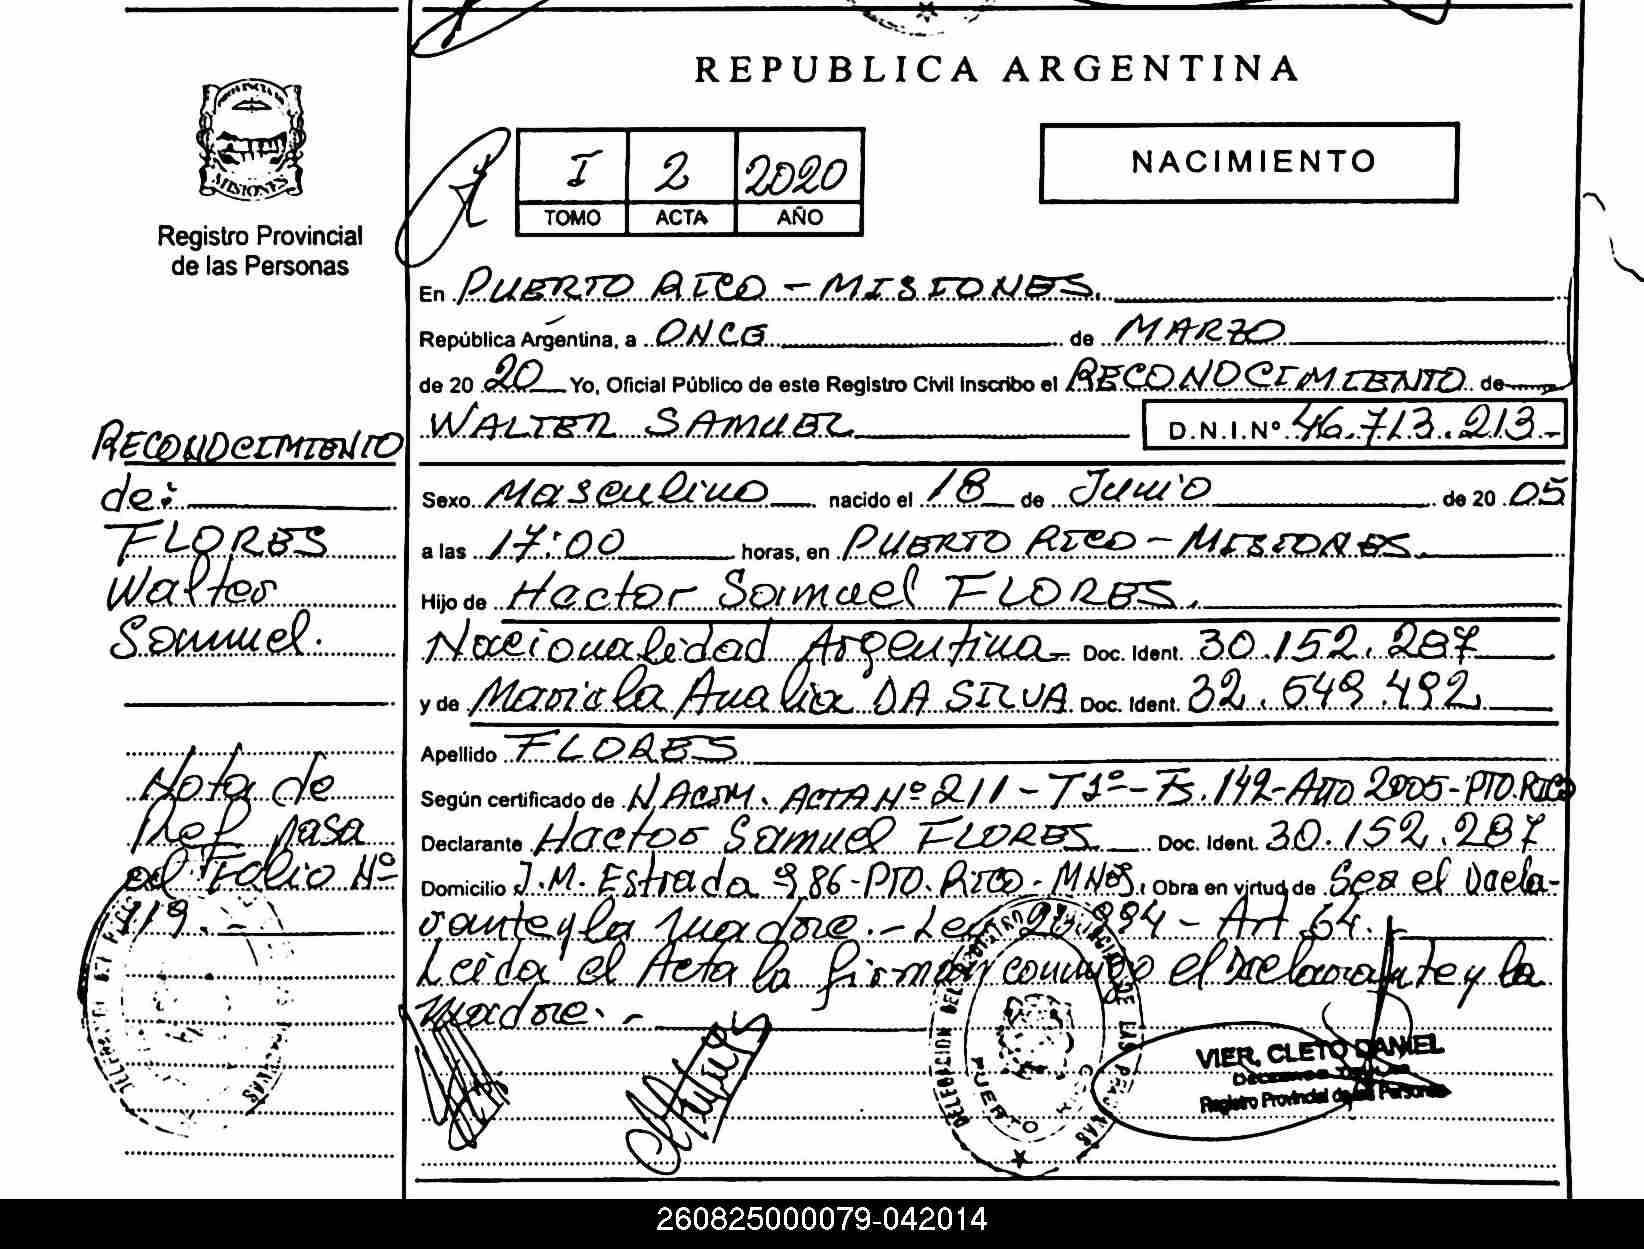 REPUBLICA ARGENTINA
MISIONES
Registro Provincial
de las Personas
I 2 2020
TOMO ACTA AÑO
NACIMIENTO
En PUERTO RICO - MISIONES.
República Argentina, a ONCE de MARZO
de 20 20 Yo, Oficial Público de este Registro Civil Inscribo el RECONOCIMIENTO de
WALTER SAMUEL D.N.I.Nº 46.713.213.-
Sexo Masculino nacido el 18 de Junio de 20 05
a las 17:00 horas, en PUERTO RICO - MISIONES.
Hijo de Hector Samuel FLORES.
Nacionalidad Argentina- Doc. Ident. 30.152.287
y de Mariela Analia DA SILVA Doc. Ident. 32.549.492
Apellido FLORES
Según certificado de NACIM. ACTA Nº 211 - T1º - Fs. 142 - AÑO 2005 - PTO. RICO
Declarante Hector Samuel FLORES Doc. Ident. 30.152.287
Domicilio J.M. Estrada 986 - PTO. RICO - MNES. Obra en virtud de Ser el Decla-
rante y la madre.- Ley 26.994 - Art 64.
Leida el Acta la firman conmigo el Declarante y la
madre.-
RECONOCIMIENTO
de:
FLORES
Walter
Samuel.
Nota de
Ref pasa
al Folio Nº
119.-
DELEGACION DEL REGISTRO PROVINCIAL DE LAS PERSONAS
PUERTO RICO
VIER, CLETO DANIEL
Registro Provincial de las Personas
260825000079-042014